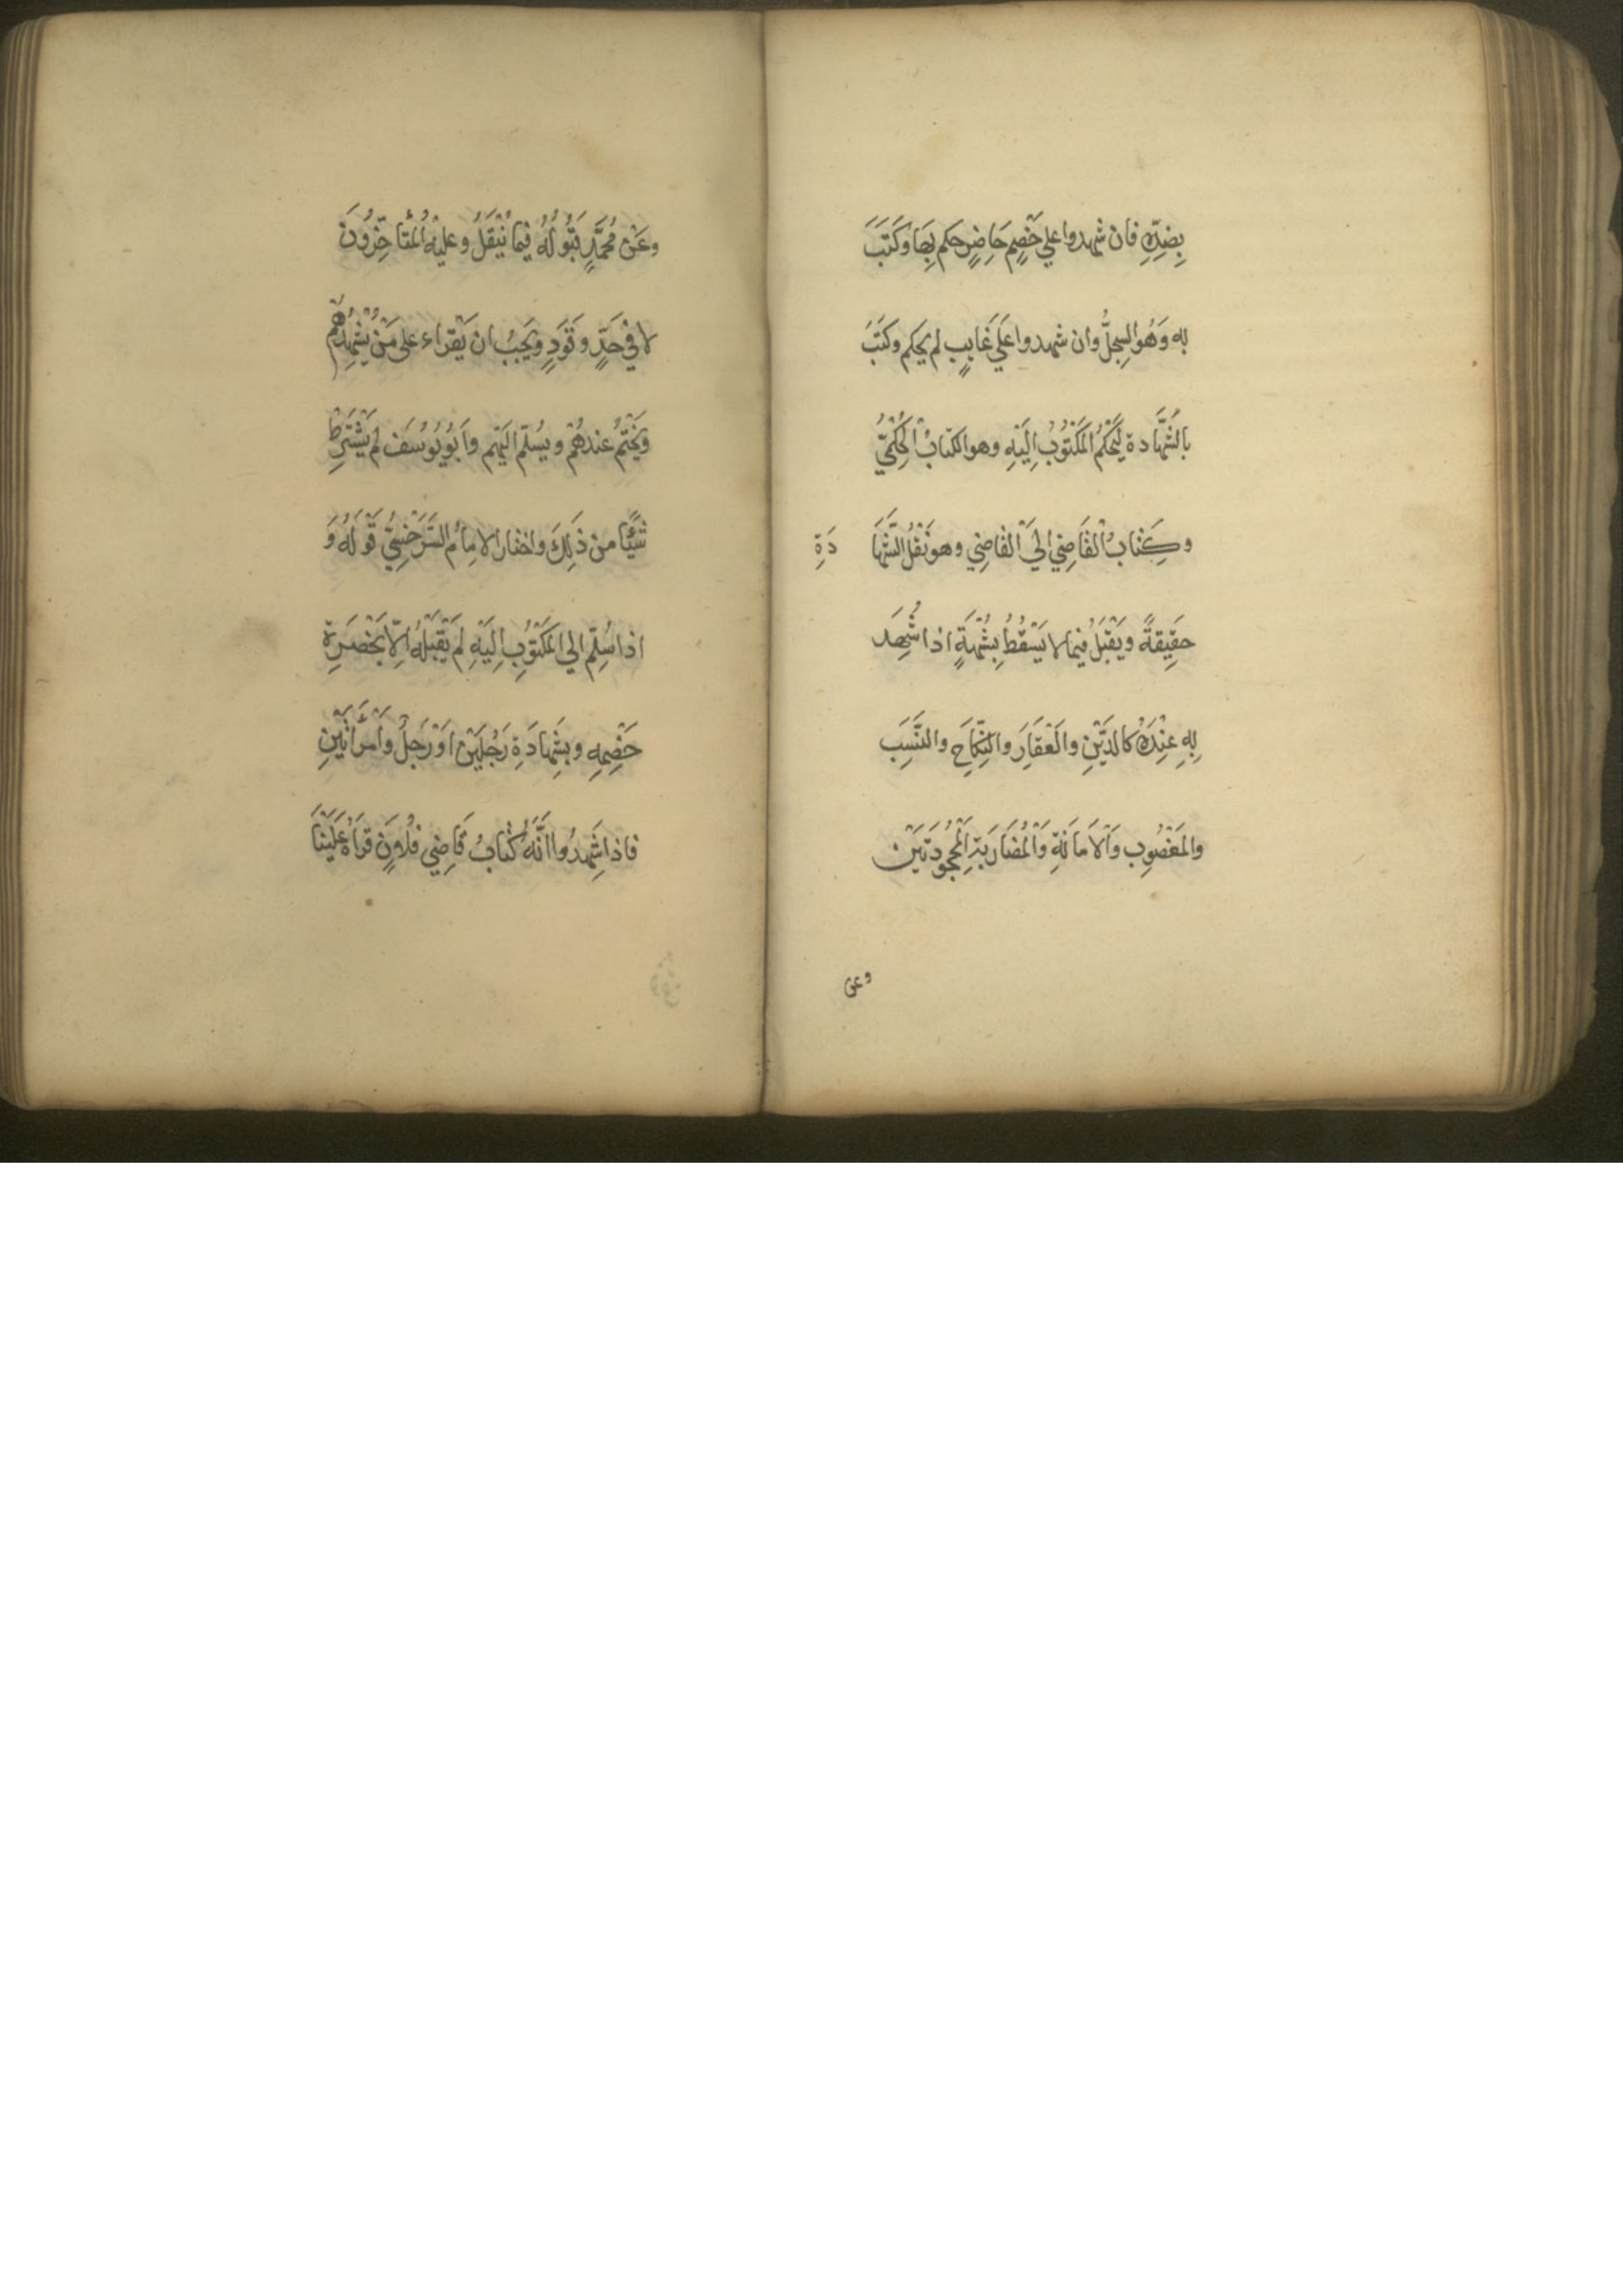 بِضِدِّهِ فان شهدوا علي خَصِمٍ حَاضِرٍ حكم بِهَا وَكَتَبَ
به وَهُو السِجلُّ وان شهدوا عَلَي غَايبٍ لم يحكم وكَتَبَ
بالشَّهَادة لِيَحْكُمَ المَكْتُوبُ اِلَيْهِ وهو الكتابُ الحُكْمِيُّ
وكِتَابُ القَاضِي اِلَي القَاضِي وهو نَقْلُ الشَّهَا دَةِ
حَقِيقةً ويَقْبَلُ فيما لا يَسْقُطُ بِشُبْهَةٍ اذا شُهِدَ
بِهِ عِنْدَهُ كالدَّيْنِ والعَقَارِ والنِّكَاحِ والنَّسَبِ
والمَغْصُوبِ وَالاَمَانَةِ وَالمُضَارَبَةِ المَجْحُودَتَيْن
وعن
وعَنْ مُحَمَّدٍ قَبُولُهُ فيما يُنْقَلُ وعليه المُتَأخِّرُونَ
لا فِي حَدٍّ وقَوَدٍ ويَجِبُ ان يَقْراء على مَنْ يُشْهِدُهُمْ
ويَخْتِمُ عندهُمْ ويُسَلِّم اليَهِم وابُو يُوسُفَ لم يَشْتَرِطْ
شَيْئًا من ذَلِكَ واختار الامامُ السَّرَخْسِيُّ قَوْلَهُ وَ
اذا سُلِّم الي المَكْتُوبِ اِلَيْهِ لم يَقْبَلْهُ اِلّا بَحْضَرَةِ
خَصْمِهِ وبشَهادَةِ رَجُلَيْنِ اوْ رَجلٍ وَامْرَأتَيْنِ
فاذا شَهِدُوا اَنَّهُ كتابُ قَاضِي فلاونٍ قراهُ عَلَيْنَا